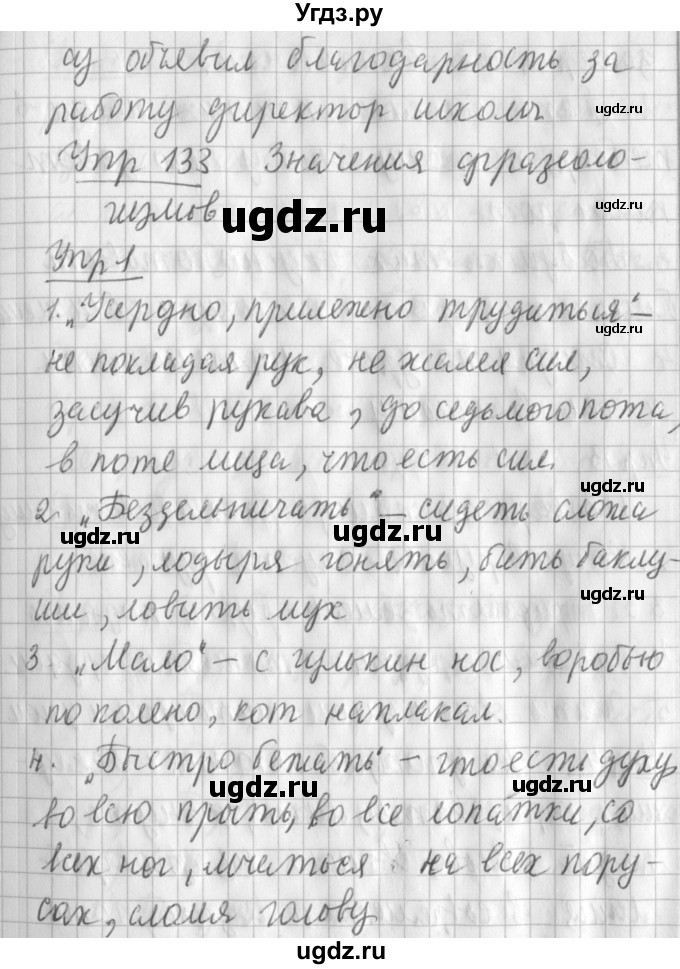 Угдз.ру
су объевил благодарность за
работу директор школы.
ugdz.ru
Упр 133 Значения фразеоло-
ugdz.ru
гизмов
ugdz.ru
Упр 1
1. „Усердно, прилежно трудиться“ –
ugdz.ru
не покладая рук, не жалея сил,
засучив рукава, до седьмого пота,
в поте лица, что есть сил.
ugdz.ru
2. „Бездельничать“ – сидеть сложа
ugdz.ru
руки, лодыря гонять, бить баклу-
ugdz.ru
ши, ловить мух
3. „Мало“ – с гулькин нос, воробью
по полено, кот наплакал.
4. „Быстро бежать“ – что есть духу,
ugdz.ru
ugdz.ru
во всю прыть, во все лопатки, со
всех ног, мчаться на всех пару-
сах, сломя голову
ugdz.ru